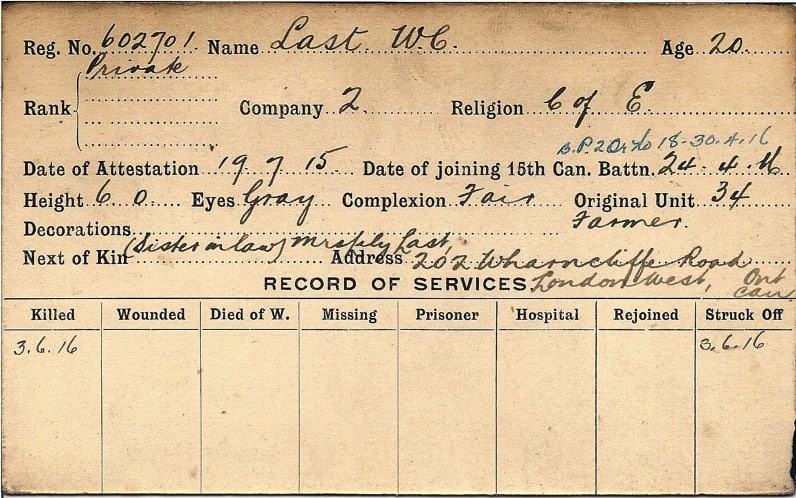 Reg. No. 602701. Name Last W.C. Age 20
Private
Rank Company 2. Religion C of E.
B.P. 2 Or. No 18-30.4.16
Date of Attestation 19 7 15 Date of joining 15th Can. Battn. 24-4-16
Height 6 0 Eyes Gray Complexion Fair Original Unit 34
Decorations Farmer.
Next of Kin (Sister in law) Mrs Last, Address 202 Wharncliffe Road
RECORD OF SERVICES London West, Ont
Can
Killed Wounded Died of W. Missing Prisoner Hospital Rejoined Struck Off
3.6.16 3.6.16